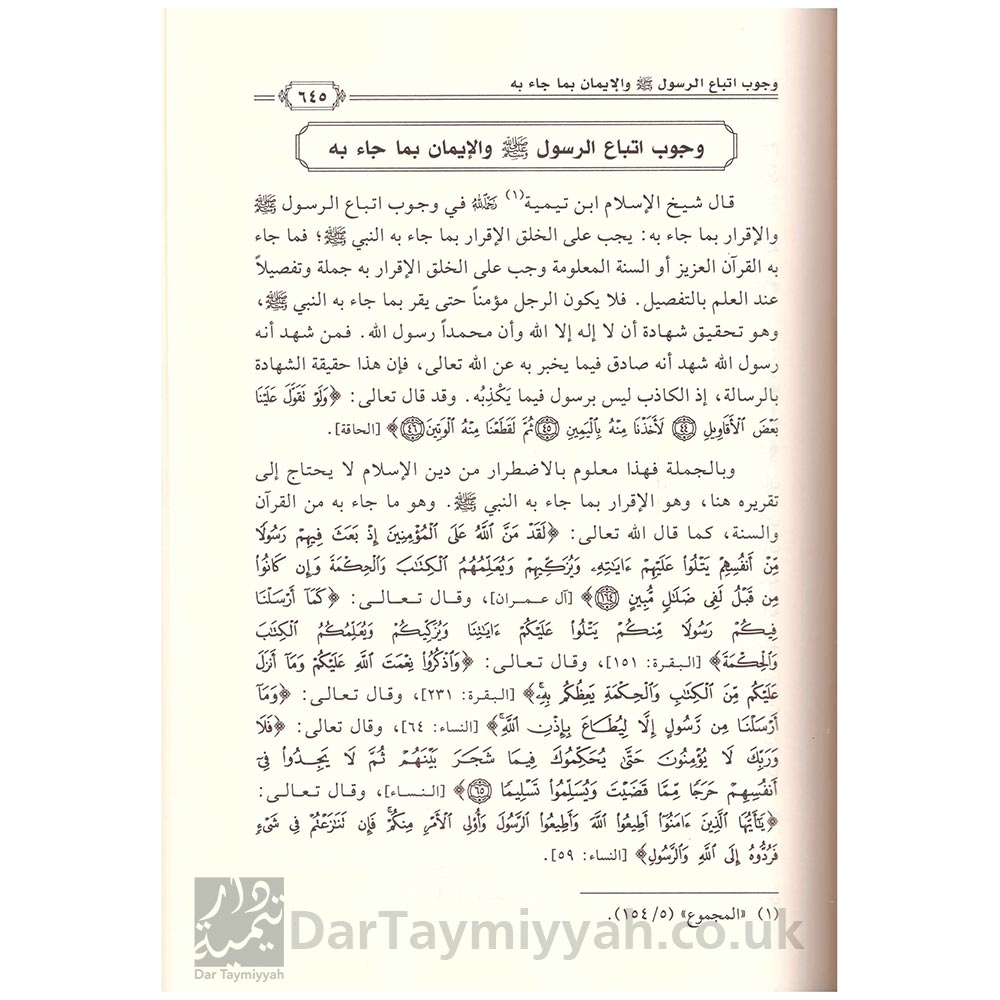 وجوب اتباع الرسول ﷺ والإيمان بما جاء به
٦٤٥
وجوب اتباع الرسول ﷺ والإيمان بما جاء به
قال شيخ الإسلام ابن تيمية(١) رحمه الله في وجوب اتباع الرسول ﷺ
والإقرار بما جاء به: يجب على الخلق الإقرار بما جاء به النبي ﷺ؛ فما جاء
به القرآن العزيز أو السنة المعلومة وجب على الخلق الإقرار به جملة وتفصيلاً
عند العلم بالتفصيل. فلا يكون الرجل مؤمناً حتى يقر بما جاء به النبي ﷺ،
وهو تحقيق شهادة أن لا إله إلا الله وأن محمداً رسول الله. فمن شهد أنه
رسول الله شهد أنه صادق فيما يخبر به عن الله تعالى، فإن هذا حقيقة الشهادة
بالرسالة، إذ الكاذب ليس برسول فيما يَكْذِبُه. وقد قال تعالى: ﴿وَلَوْ تَقَوَّلَ عَلَيْنَا
بَعْضَ ٱلْأَقَاوِيلِ ٤٤ لَأَخَذْنَا مِنْهُ بِٱلْيَمِينِ ٤٥ ثُمَّ لَقَطَعْنَا مِنْهُ ٱلْوَتِينَ ٤٦﴾ [الحاقة].
وبالجملة فهذا معلوم بالاضطرار من دين الإسلام لا يحتاج إلى
تقريره هنا، وهو الإقرار بما جاء به النبي ﷺ. وهو ما جاء به من القرآن
والسنة، كما قال الله تعالى: ﴿لَقَدْ مَنَّ ٱللَّهُ عَلَى ٱلْمُؤْمِنِينَ إِذْ بَعَثَ فِيهِمْ رَسُولًا
مِّنْ أَنفُسِهِمْ يَتْلُوا۟ عَلَيْهِمْ ءَايَـٰتِهِۦ وَيُزَكِّيهِمْ وَيُعَلِّمُهُمُ ٱلْكِتَـٰبَ وَٱلْحِكْمَةَ وَإِن كَانُوا۟
مِن قَبْلُ لَفِى ضَلَـٰلٍ مُّبِينٍ ١٦٤﴾ [آل عمران]، وقال تعالى: ﴿كَمَآ أَرْسَلْنَا
فِيكُمْ رَسُولًا مِّنكُمْ يَتْلُوا۟ عَلَيْكُمْ ءَايَـٰتِنَا وَيُزَكِّيكُمْ وَيُعَلِّمُكُمُ ٱلْكِتَـٰبَ
وَٱلْحِكْمَةَ﴾ [البقرة: ١٥١]، وقال تعالى: ﴿وَٱذْكُرُوا۟ نِعْمَتَ ٱللَّهِ عَلَيْكُمْ وَمَآ أَنزَلَ
عَلَيْكُم مِّنَ ٱلْكِتَـٰبِ وَٱلْحِكْمَةِ يَعِظُكُم بِهِۦ﴾ [البقرة: ٢٣١]، وقال تعالى: ﴿وَمَآ
أَرْسَلْنَا مِن رَّسُولٍ إِلَّا لِيُطَاعَ بِإِذْنِ ٱللَّهِ﴾ [النساء: ٦٤]، وقال تعالى: ﴿فَلَا
وَرَبِّكَ لَا يُؤْمِنُونَ حَتَّىٰ يُحَكِّمُوكَ فِيمَا شَجَرَ بَيْنَهُمْ ثُمَّ لَا يَجِدُوا۟ فِىٓ
أَنفُسِهِمْ حَرَجًا مِّمَّا قَضَيْتَ وَيُسَلِّمُوا۟ تَسْلِيمًا ٦٥﴾ [النساء]، وقال تعالى:
﴿يَـٰٓأَيُّهَا ٱلَّذِينَ ءَامَنُوٓا۟ أَطِيعُوا۟ ٱللَّهَ وَأَطِيعُوا۟ ٱلرَّسُولَ وَأُو۟لِى ٱلْأَمْرِ مِنكُمْ فَإِن تَنَـٰزَعْتُمْ فِى شَىْءٍ
فَرُدُّوهُ إِلَى ٱللَّهِ وَٱلرَّسُولِ﴾ [النساء: ٥٩].
(١) «المجموع» (٥/ ١٥٤).
دار تيمية
Dar Taymiyyah
DarTaymiyyah.co.uk